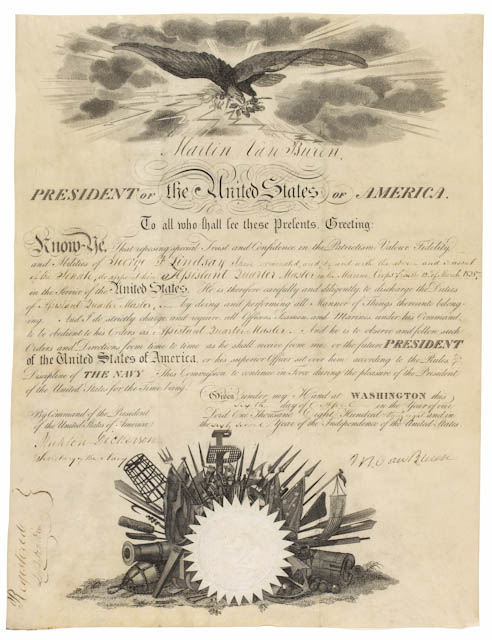 Martin Van Buren,
PRESIDENT OF the United States OF AMERICA.
To all who shall see these Presents, Greeting:
Know Ye, That reposing special Trust and Confidence in the Patriotism, Valour, Fidelity,
and Abilities of George F Lindsay I have nominated and by and with the advice and consent
of the Senate, do appoint him Assistant Quarter Master in the Marine Corps from the
in the Service of the United States. He is therefore carefully and diligently to discharge the Duties
of Assistant Quarter Master, by doing and performing all Manner of Things thereunto belong-
ing. And I do strictly charge and require all Officers, Seamen and Marines, under his Command,
to be obedient to his Orders as Assistant Quarter Master. And he is to observe and follow such
Orders and Directions from time to time as he shall receive from me, or the future PRESIDENT
of the United States of America, or his superior Officer set over him according to the Rules &
Discipline of THE NAVY. This Commission to continue in Force during the pleasure of the President
of the United States for the Time being.
Given under my Hand at WASHINGTON this
day of in the Year of our
Lord One Thousand Eight Hundred and in the
Year of the Independence of the United States
By Command of the President
of the United States of America:
Mahlon Dickerson
Secretary of the Navy
M Van Buren
Registered